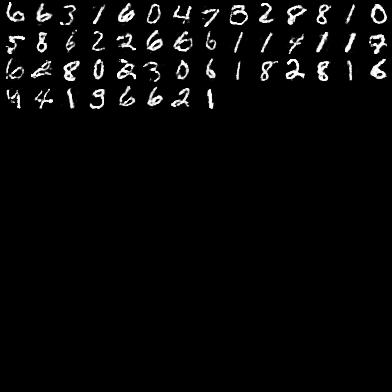 6 6 3 1 6 0 4 7 8 2 8 8 1 0
5 8 6 2 2 6 6 6 1 1 4 1 1 7
6 2 8 0 2 3 0 6 1 8 2 8 1 6
4 4 1 9 6 6 2 1